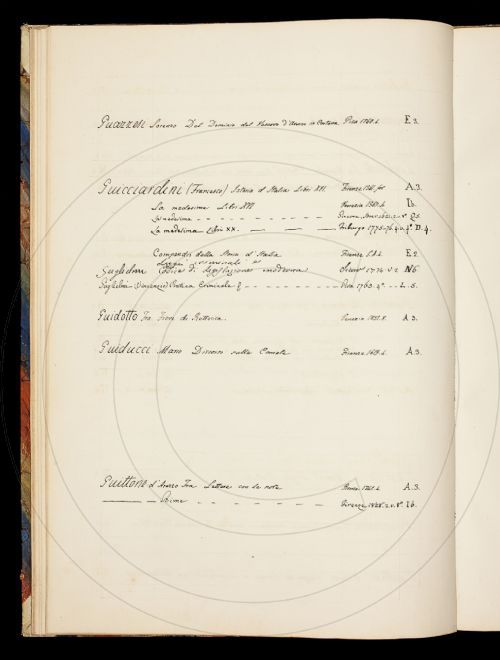 Guazzesi Lorenzo Del Dominio del Vescovo d'Arezzo in Cortona Pisa 1760.4. E 3.
Guicciardini (Francesco) Istoria d'Italia Libri XVI. Firenze 1561. fo A.3.
La medesima Libri XVI Venezia 4. Ib.
La medesima - - - - - - - 2.
La medesima Libri XX. Friburgo 1775-76 4.o 4° D.4.
Compendio della Storia d'Italia Firenze E.2
Legge
Guglielmi Codice di legislazione 1774 v 2 N6
Guglielmi Pratica Criminale - - - - - Pisa 1763. 4° - - L. 5.
Guidotto Fra Fiore di Rettorica. Venezia 1821.8. A 3.
Guiducci Mario Discorso sulle Comete Firenze 1619.4. A.3.
Guittone d'Arezzo Fra Lettere con le note Roma 4. A.3.
Rime - - - - - - - - - Firenze 1828. 2.v. 8° Ib.